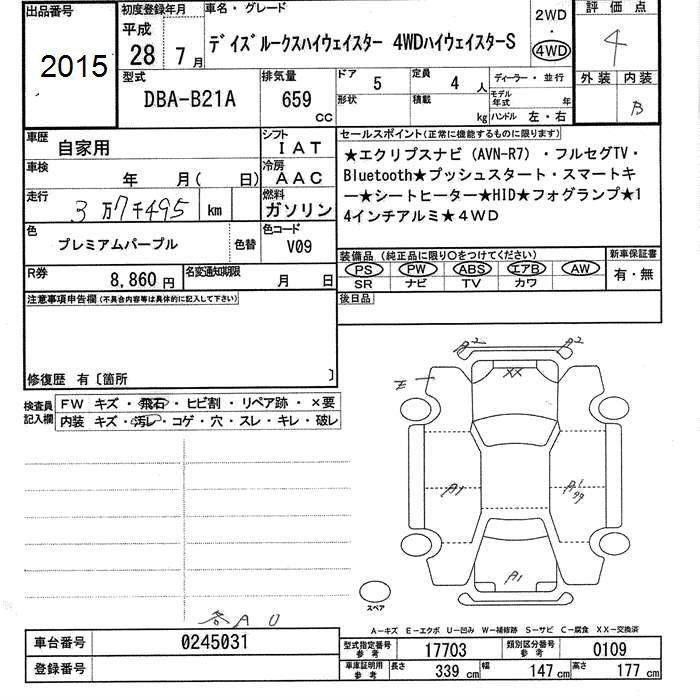 出品番号
2015
初度登録年月
平成
28 年 7 月
車名・グレード
デイズルークスハイウェイスター 4WDハイウェイスターS
2WD
・
4WD
評価点
4
外装 内装
B
型式
DBA-B21A
排気量
659 cc
ドア 5
形状
定員 4 人
積載 kg
ディーラー・並行
モデル年式 年
ハンドル 左・右
車歴
自家用
シフト
IAT
車検
年 月( 日)
冷房
AAC
走行
3万7千495 km
燃料
ガソリン
色
プレミアムパープル
色替
色コード
V09
R券
8,860円
名変通知期限
月 日
セールスポイント(正常に機能するものに限ります)
★エクリプスナビ(AVN-R7)・フルセグTV・
Bluetooth★プッシュスタート・スマートキ
ー★シートヒーター★HID★フォグランプ★1
4インチアルミ★4WD
装備品(純正品に限り〇をつけてください)
PS PW ABS エアB AW
SR ナビ TV カワ
新車保証書
有・無
後日品
注意事項申告欄(不具合内容等は具体的に記入して下さい)
修復歴 有〔箇所 〕
検査員
記入欄
FW キズ・飛石・ヒビ割・リペア跡・×要
内装 キズ・汚レ・コゲ・穴・スレ・キレ・破レ
A2 A2
XX
E
A1
A1
99
A1
スペア
各AU
A-キズ E-エクボ U-凹み W-補修跡 S-サビ C-腐食 XX-交換済
車台番号
0245031
登録番号
型式指定番号
参考
17703
類別区分番号
参考
0109
車庫証明用
参考
長さ 339 cm 幅 147 cm 高さ 177 cm